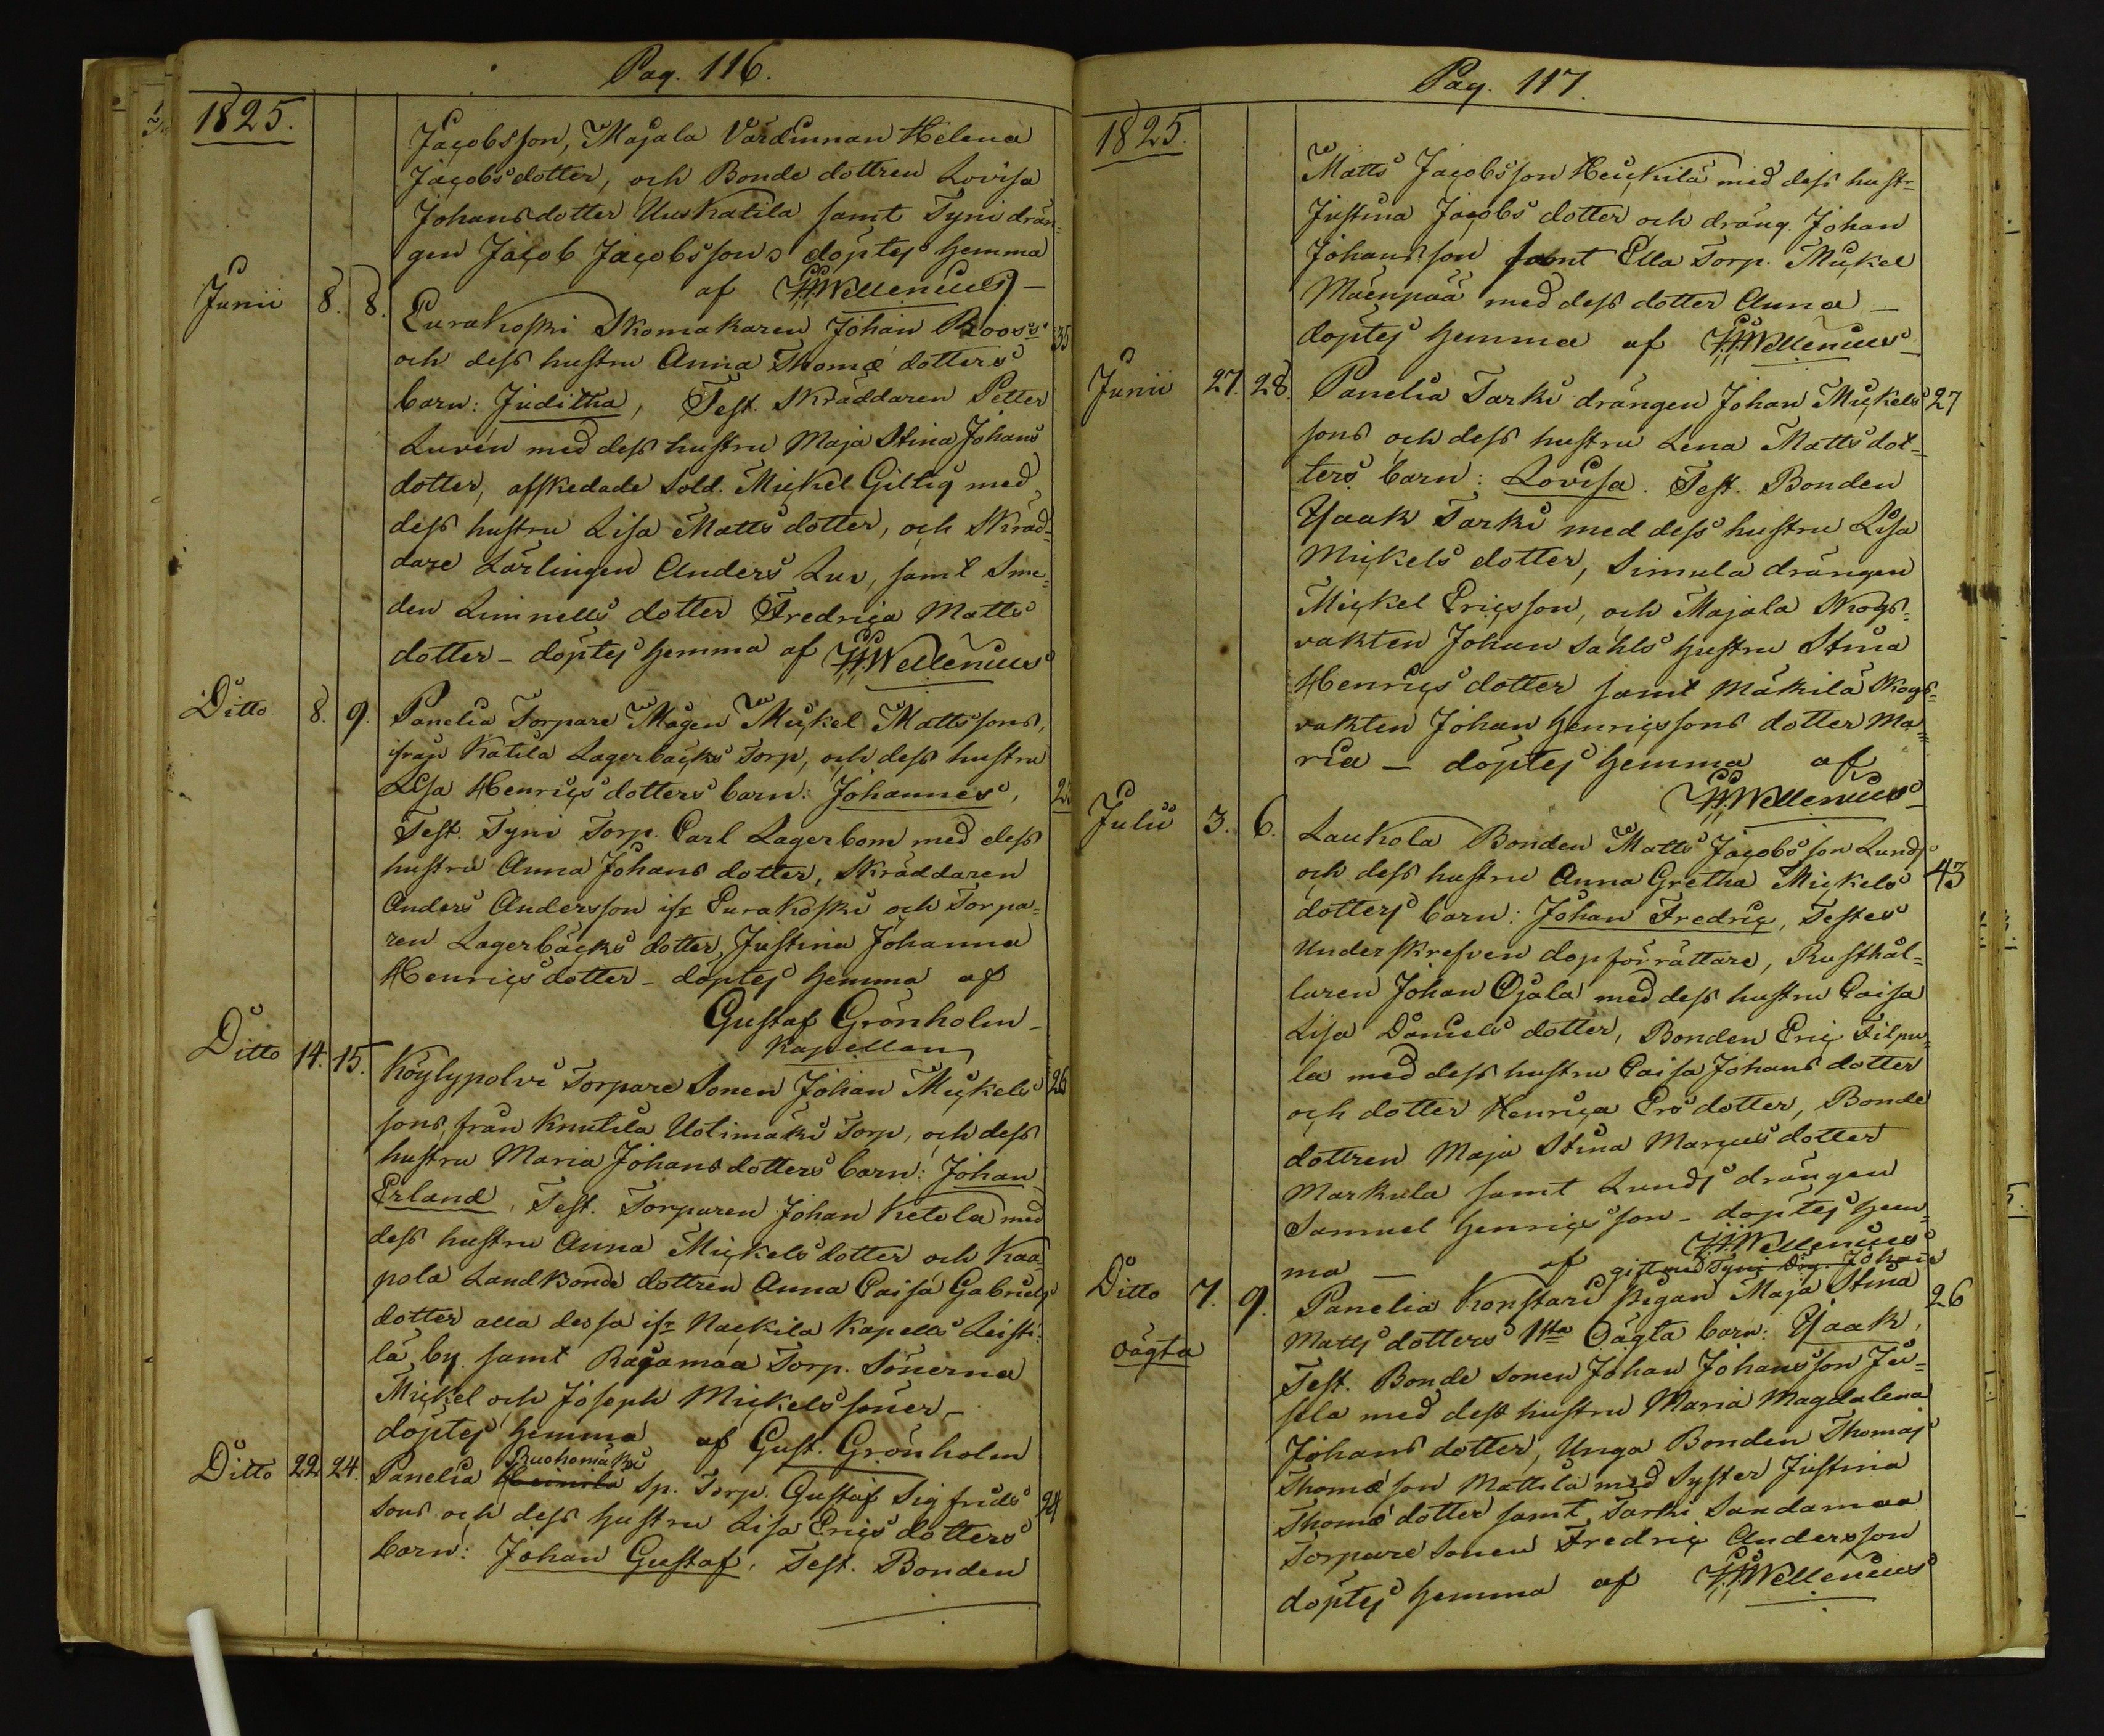 Pag. 116.
1825.
Jacobsson, Majala Värdinnan Helena
Jacobsdotter, och Bonde dottren Lovisa
Johansdotter Uuskatila samt Tyni drän=
gen Jacob Jacobsson döptes hemma
af H.H.Wellenius
Junii 8. 8. Eurakoski Skomakaren Johan Roos's 35
och dess hustru Anna Thomæ dotters
barn: Juditha, Test. Skräddaren Petter
Luren med dess hustru Maja Stina Johans
dotter, afskedade Sold. Mickel Giltig med
dess hustru Lisa Matts dotter, och Skräd=
dare Lärlingen Anders Luv, samt Sme=
den Limnells dotter Fredrica Matts
dotter – döptes hemma af H.H.Wellenius
Ditto 8. 9. Panelia Torpare Mågen Mickel Mattssons,
ifrån Katila Lagerbäcks Torp, och dess hustru
Lisa Henrics dotters barn: Johannes,
Test. Tyni Torp. Carl Lagerbom med dess
hustru Anna Johans dotter, Skräddaren
Anders Andersson ifr Eurakoski och Torpa=
ren Lagerbäcks dotter, Justina Johanna
Henrics dotter – döptes hemma af
Gustaf Grönholm –
Kapellan
Ditto 14. 15. Köylypolvi Torpare Sonen Johan Mickels 26
sons, från Knutila Uotimäki Torp, och dess
hustru Maria Johansdotters barn: Johan
Erland, Test. Torparen Johan Ketola med
dess hustru Anna Mickels dotter och Kaa
pola Landbonde dottren Anna Caisa Gabriels
dotter alla dessa ifr Nackila Kapells Leisti=
lä by samt Rajamaa Torp. Sönerna
Mickel och Joseph Mickels söner –
döptes hemma af Gust. Grönholm
Ruohomäki
Ditto 22 24. Panelia Heinilä Sp. Torp. Gustaf Sigfrids 24
sons och dess hustru Lisa Erics dotters
barn: Johan Gustaf, Test. Bonden
Pag. 117.
1825.
Matts Jacobsson Heickilä med dess hust=
Justina Jacobs dotter och dräng. Johan
Johansson samt Ella Torp. Mickel
Mäenpää med dess dotter Anna –
döptes hemma af H.H.Wellenius
Junii 27. 28. Panelia Tarki drängen Johan Mickels 27
sons och dess hustru Lena Matts dot=
ters barn: Lovisa. Test. Bonden
Isaak Tarki med dess hustru Lisa
Mickels dotter, Simula drängen
Mickel Ericsson, och Majala Skogs=
vakten Johan Sahls hustru Stina
Henrics dotter samt Mäkilä Skogs=
vakten Johan Henricssons dotter Ma=
ria – döptes hemma af
H.H.Wellenius
Julii 3. 6. Laukola Bonden Matts Jacobsson Lunds
och dess hustru Anna Gretha Mickels 43
dotters barn: Johan Fredric, Testes
Underskrefven dopförrättare, Rusthål=
laren Johan Ojala med dess hustru Caisa
Lisa Daniels dotter, Bonden Eric Filpu=
la med dess hustru Caisa Johans dotter
och dotter Henrica Ers dotter, Bonde
dottren Maja Stina Marcus dotter
Markula samt Lunds drängen
Samuel Henricsson – döptes hem=
ma – af H.H.Wellenius
gift med Tyni Drg. Johan
Ditto 7. 9. Panelia Konstari Pigan Maja Stina 26
oägta Matts dotters 1sta Oägta barn: Isaak,
Test. Bonde sonen Johan Johansson Ju=
sela med dess hustru Maria Magdalena
Johans dotter, Unga Bonden Thomas
Thomæson Mattila med Syster Justina
Thomæ dotter samt Tarki Sandamaa
Torpare sonen Fredric Andersson
döptes hemma af H.H.Wellenius